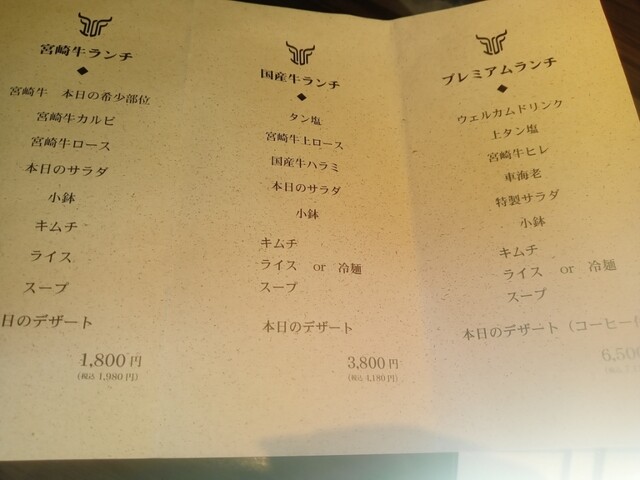 宮崎牛ランチ
宮崎牛 本日の希少部位
宮崎牛カルビ
宮崎牛ロース
本日のサラダ
小鉢
キムチ
ライス
スープ
日のデザート
1,800円
(税込 1,980円)
国産牛ランチ
タン塩
宮崎牛上ロース
国産牛ハラミ
本日のサラダ
小鉢
キムチ
ライス or 冷麺
スープ
本日のデザート
3,800円
(税込 4,180円)
プレミアムランチ
ウェルカムドリンク
上タン塩
宮崎牛ヒレ
車海老
特製サラダ
小鉢
キムチ
ライス or 冷麺
スープ
本日のデザート(コーヒー
6,500